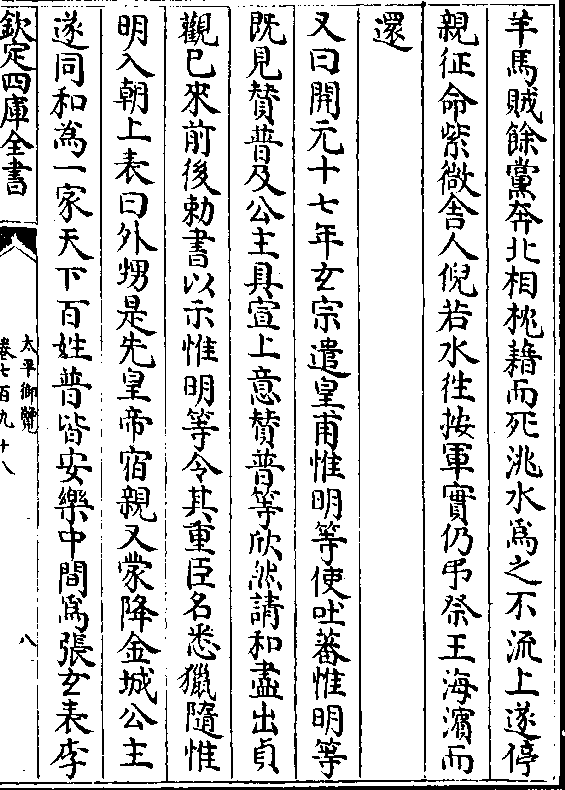 羊馬賊餘黨奔北相枕藉而死洮水為之不流上遂停
親征命紫微舍人倪若水往按軍實仍弔祭王海濱而
還
又曰開元十七年玄宗遣皇甫惟明等使吐蕃惟明等
既見賛普及公主具宣上意賛普等欣然請和盡出貞
觀已來前後勅書以示惟明等令其重臣名悉獵隨惟
明入朝上表曰外甥是先皇帝宿親又蒙降金城公主
遂同和為一家天下百姓普皆安樂中間為張玄表李
欽定四庫全書
太平御覽
卷七百九十八
八